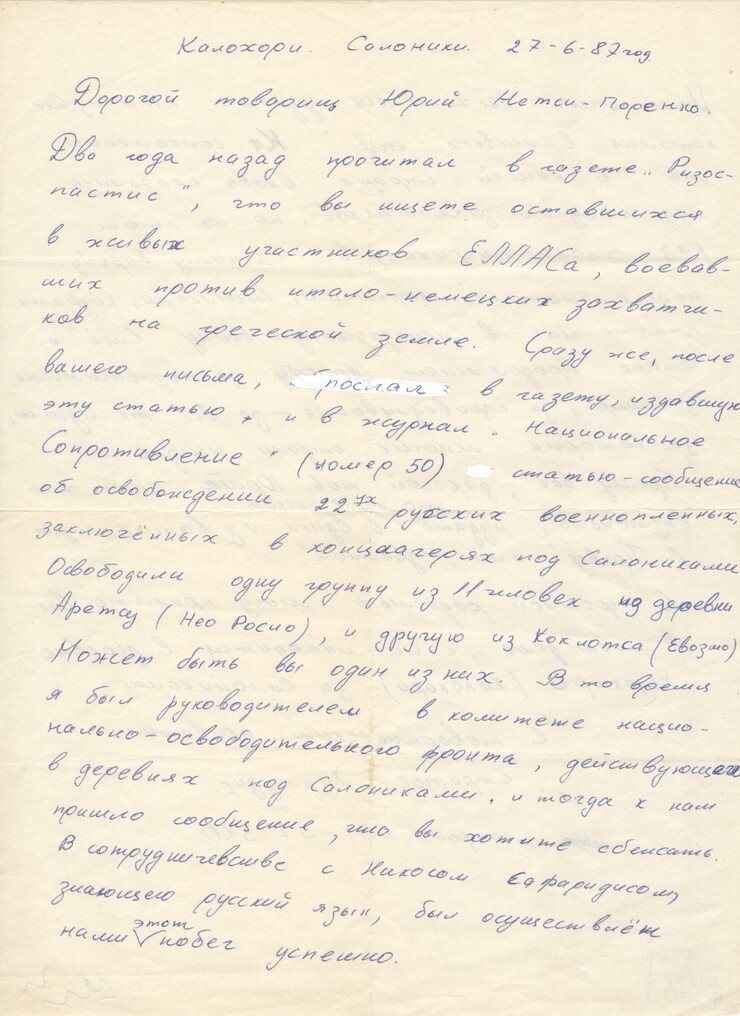 Калохори. Салоники. 27-6-87 год
Дорогой товарищ Юрий Нетси-Поренко.
Два года назад прочитал в газете „Ризос-
пастис", что вы ищете оставшихся
в живых участников ЕЛЛАСа, воевав-
ших против итало-немецких захватчи-
ков на греческой земле. Сразу же, после
вашего письма, послал в газету, издавшую
эту статью и в журнал „Национальное
Сопротивление" (номер 50) статью-сообщение
об освобождении 22ух русских военнопленных,
заключённых в концлагерях под Салониками.
Освободили одну группу из 11 человек из деревни
Аретсу (Нео Росио), и другую из Коклотса (Евозмо)
Может быть вы один из них. В то время
я был руководителем в комитете нацио-
нально-освободительного фронта, действующего
в деревнях под Салониками, и тогда к нам
пришло сообщение, что вы хотите сбежать.
В сотрудничевстве с Никосом Сафаридисом,
знающего русский язык, был осуществлён
нами этот побег успешно.